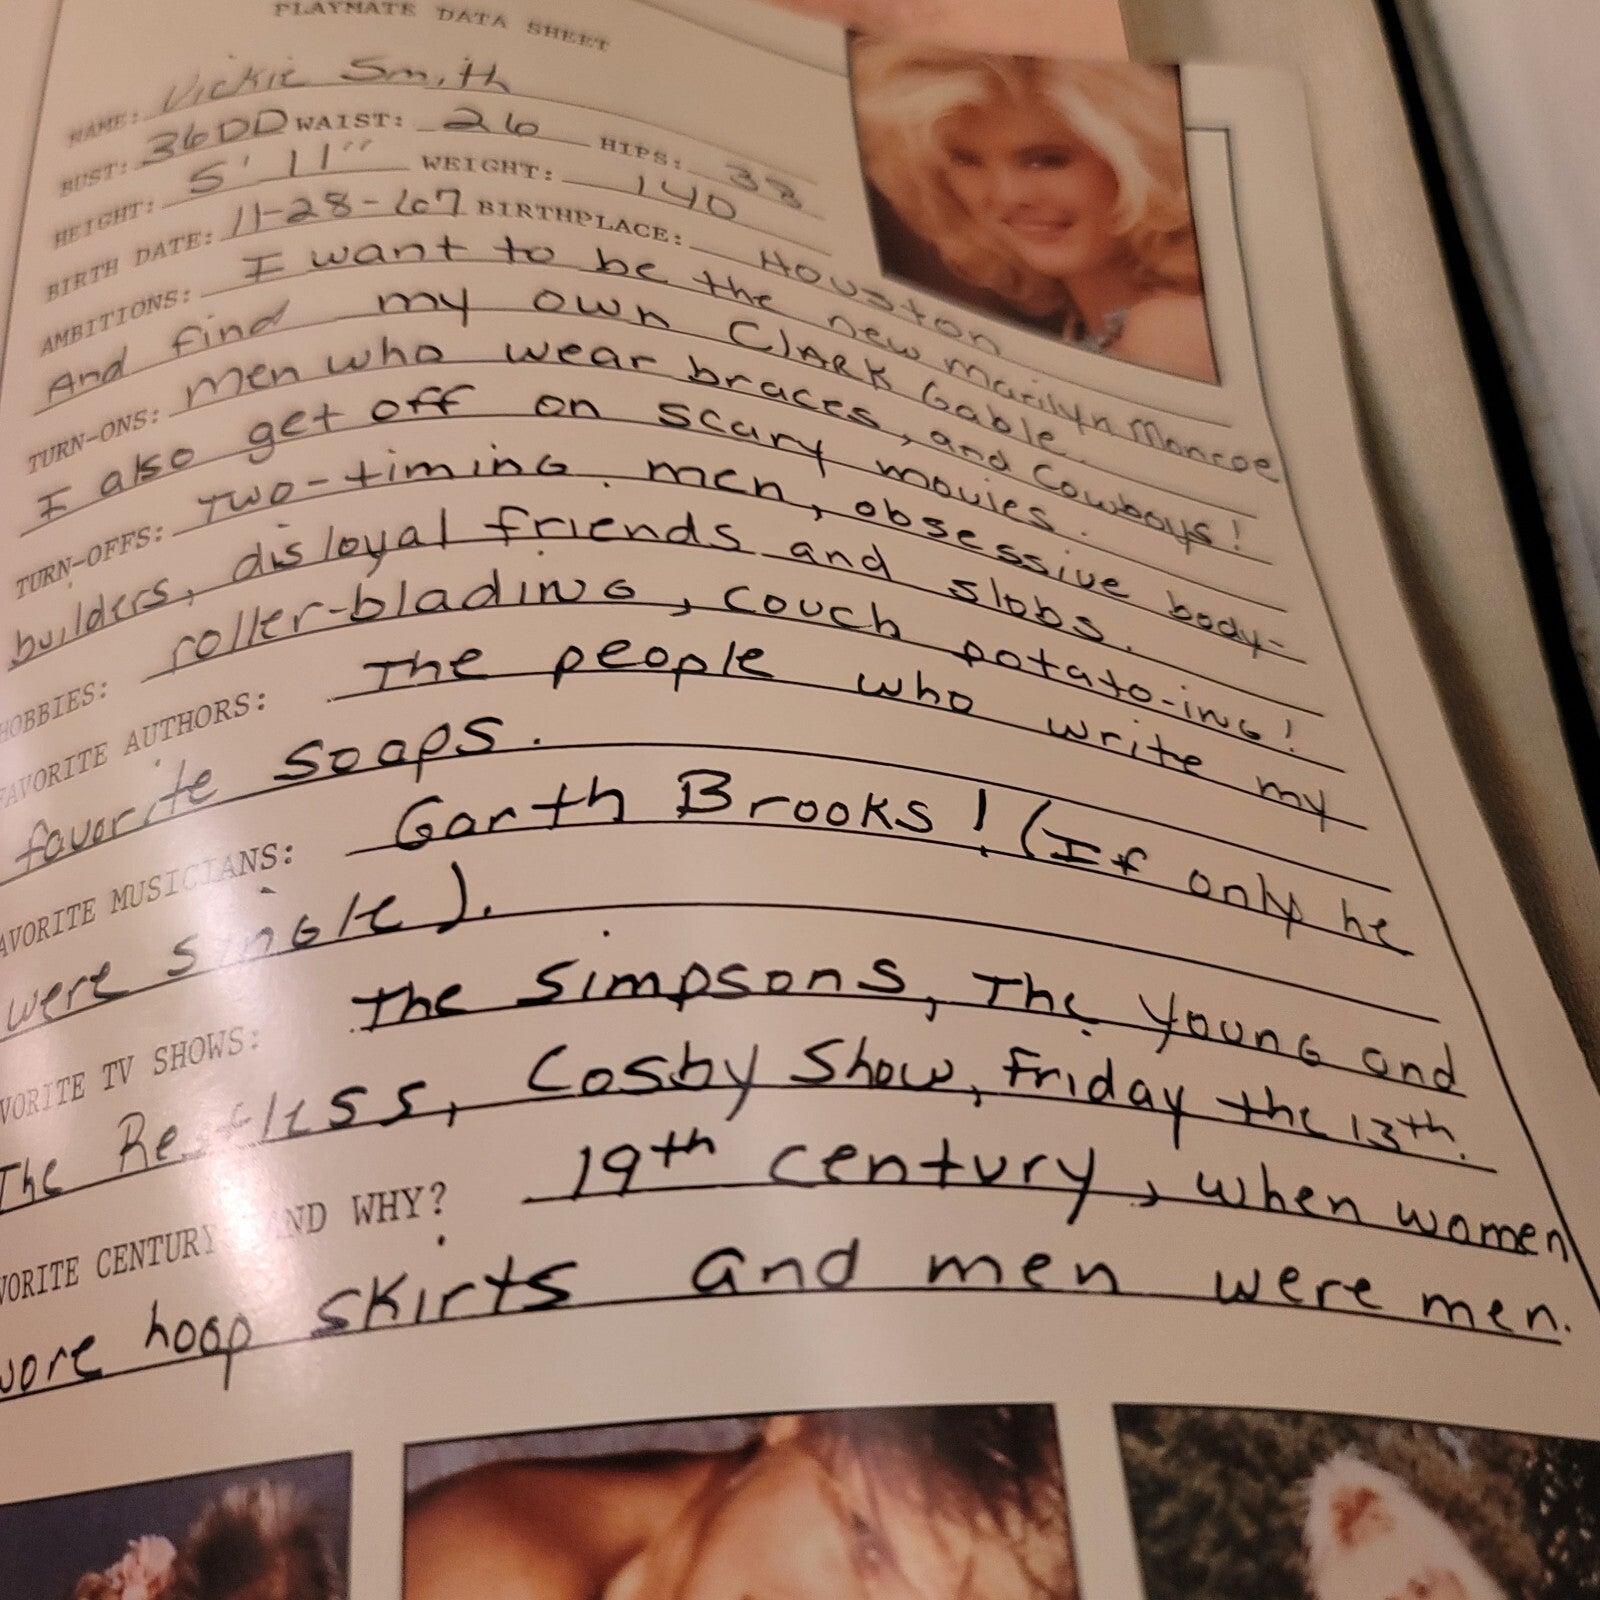 PLAYMATE DATA SHEET
NAME: Vickie Smith
BUST: 36DD WAIST: 26 HIPS: 38
HEIGHT: 5' 11" WEIGHT: 140
BIRTH DATE: 11-28-67 BIRTHPLACE: Houston
AMBITIONS: I want to be the new Marilyn Monroe
And find my own Clark Gable.
TURN-ONS: Men who wear braces, and Cowboys!
I also get off on scary movies.
TURN-OFFS: Two-timing men, obsessive body-
builders, disloyal friends and slobs.
HOBBIES: roller-blading, couch potato-ing!
FAVORITE AUTHORS: The people who write my
favorite soaps.
AVORITE MUSICIANS: Garth Brooks! (If only he
were single).
VORITE TV SHOWS: the Simpsons, The Young and
The Restless, Cosby Show, Friday the 13th.
VORITE CENTURY AND WHY? 19th century, when women
wore hoop skirts and men were men.